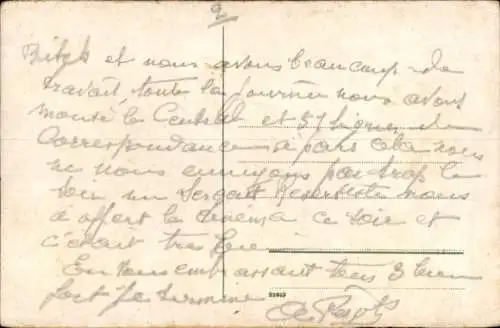 2
Bitche et nous avons beaucoup de
travail, toute la journée nous avons
monté le Central et 37 lignes de
Correspondance à part cela nous
ne nous ennuyons pas trop le
soir un Sergent Réserviste nous
a offert le cinéma ce soir et
c'était très bien
En vous embrassant tous 3 bien
fort je termine